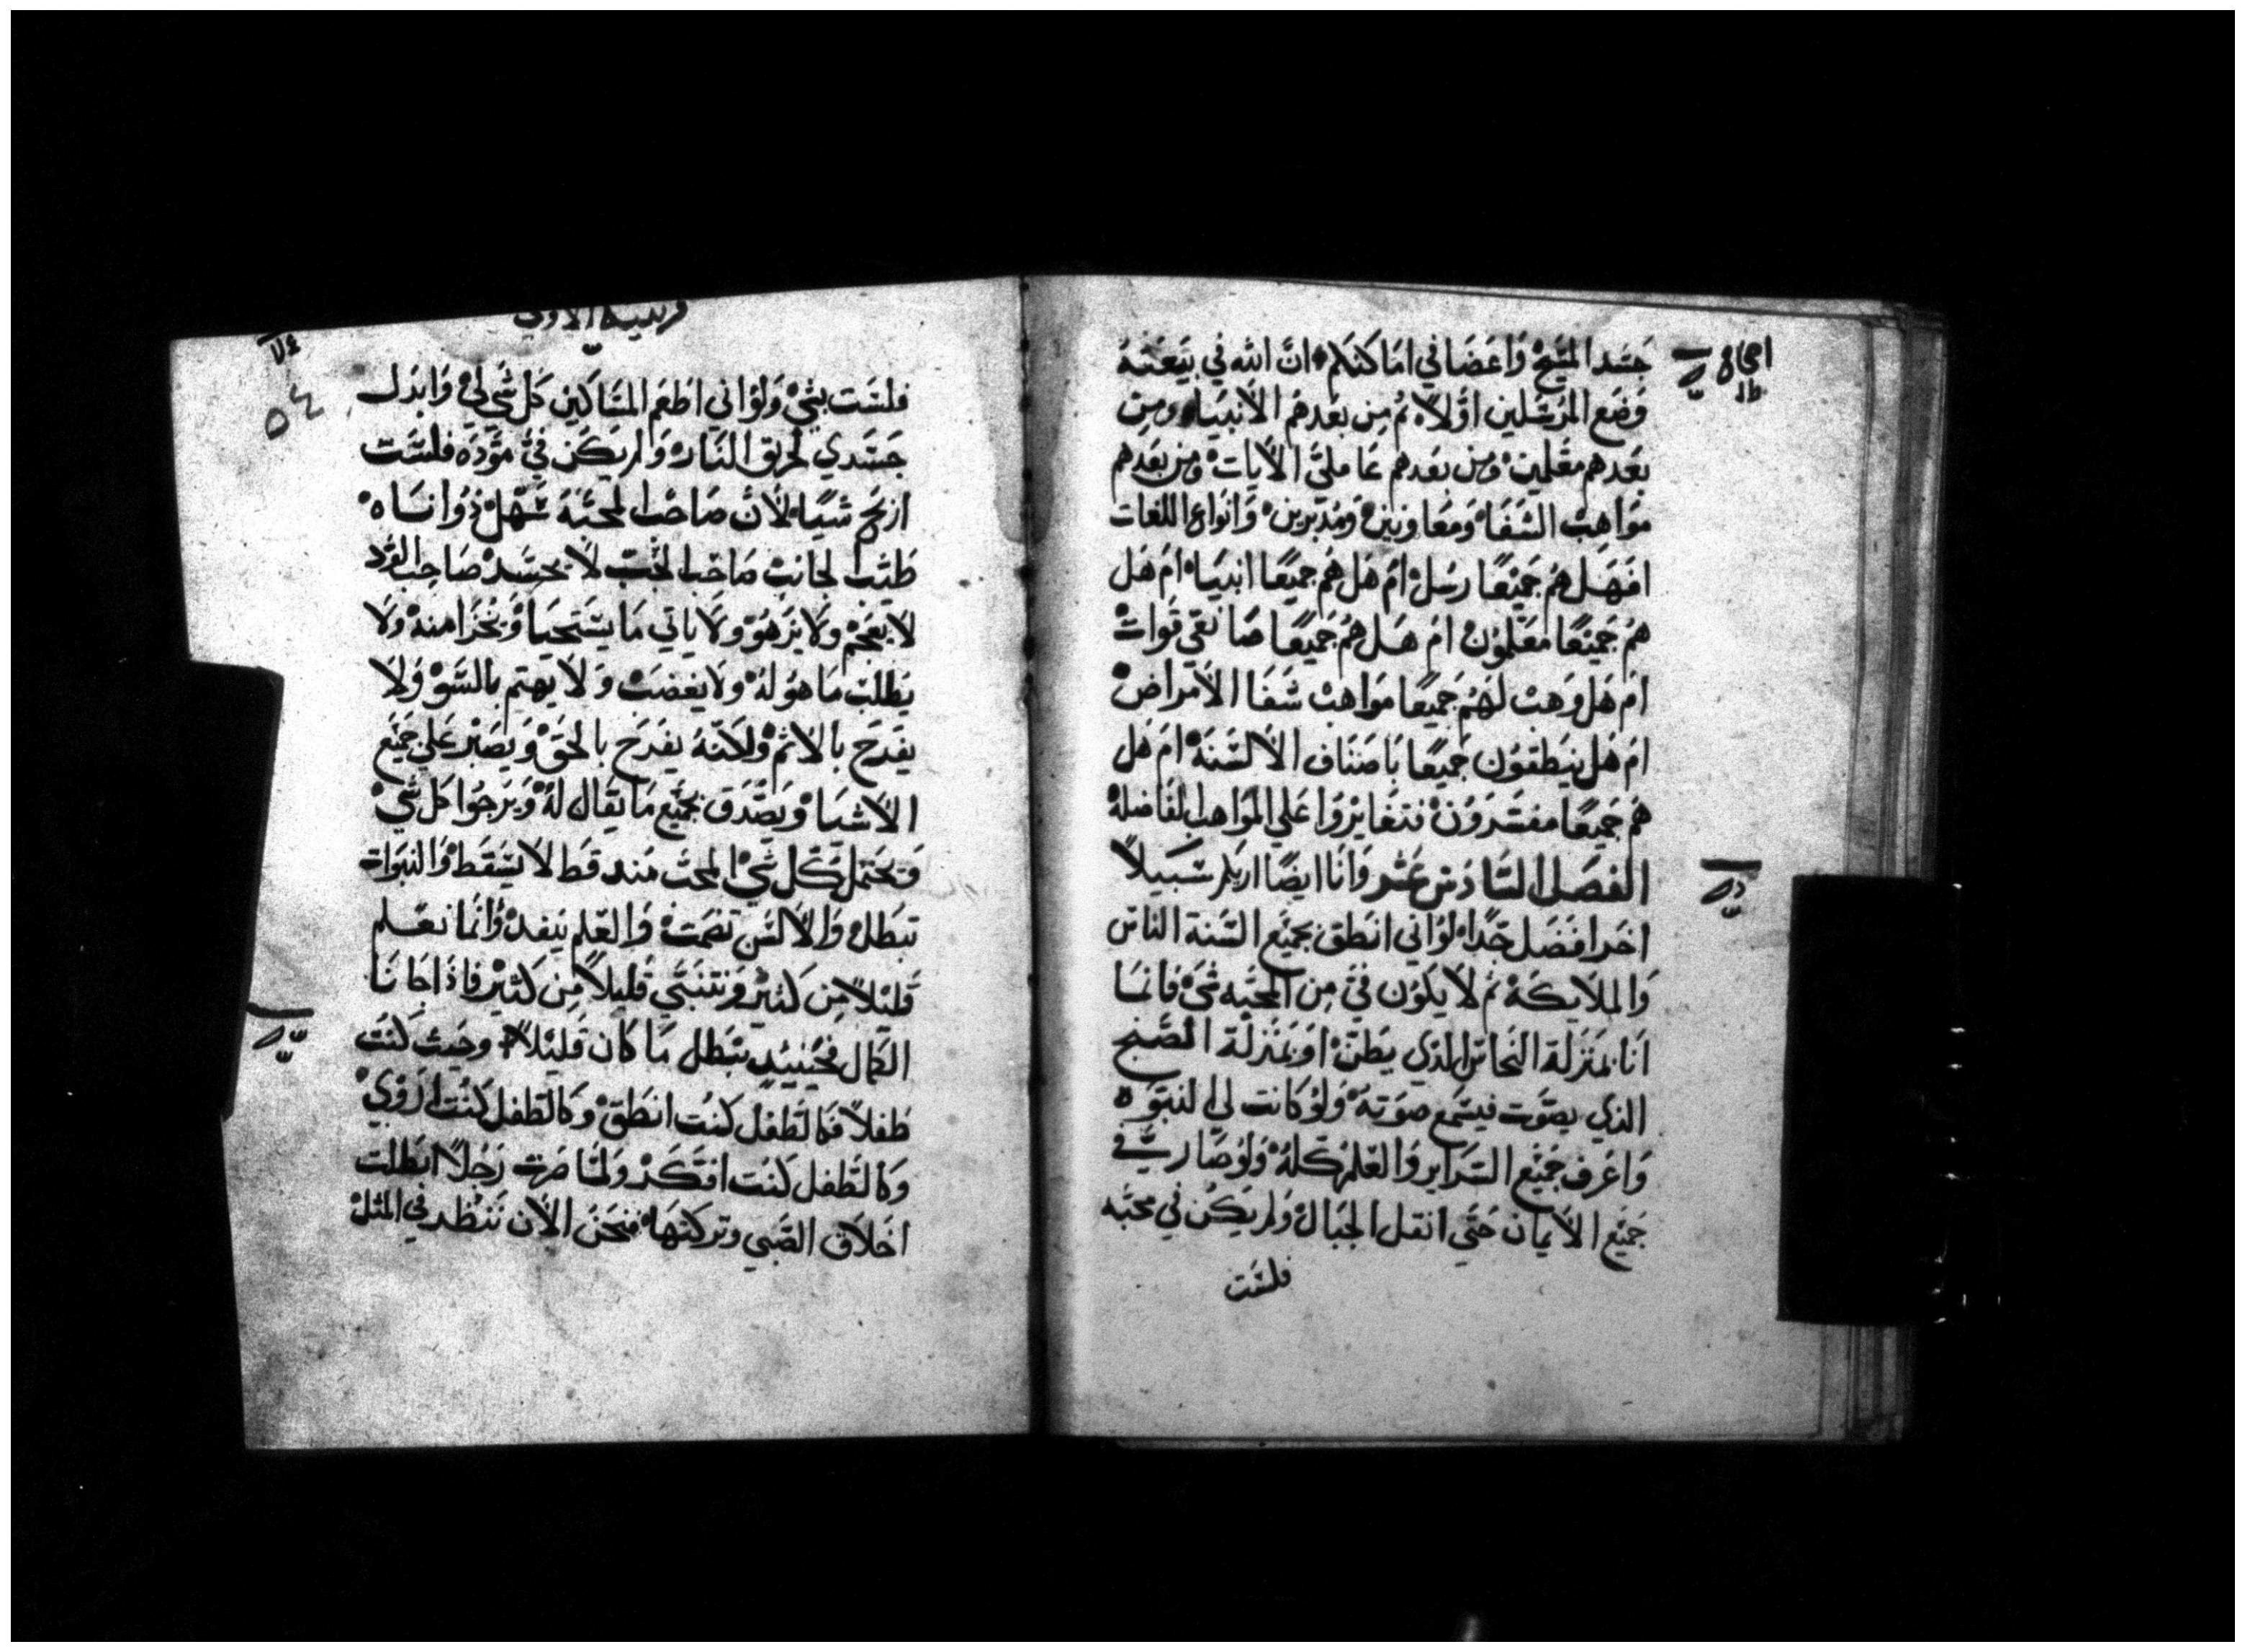 جسد المسيح واعضا في اماكنكم ان الله في بيعته
وضع المرسلين اولاً ثم من بعدهم الانبياء ومن
بعدهم معلمين ومن بعدهم عاملي الايات ومن بعدهم
مواهب الشفا ومعاونين ومدبرين وانواع اللغات
افهل هم جميعًا رسل ام هل هم جميعًا انبياء ام هل
هم جميعًا معلمون ام هل هم جميعًا صانعي قوات
ام هل وهب لهم جميعًا مواهب شفا الامراض
ام هل ينطقون جميعًا باصناف الالسنة ام هل
هم جميعًا مفسرون فتغايروا علي المواهب الفاضله
الفصل السادس عشر وانا ايضًا اريكم سبيلاً
اخر افضل جدًا لو اني انطق بجميع السنة الناس
والملايكة ثم لا يكون فيّ من المحبه شي فانما
انا بمنزلة النحاس الذي يطن او بمنزلة الصنج
الذي يصوت فيسمع صوته ولو كانت لي النبوه
واعرف جميع السراير والعلم كله ولو صار فيّ
جميع الايمان حتي انقل الجبال ولم يكن في محبه
فلست
الاولي
٥٤
فلست بشي ولو اني اطعم المساكين كل شي لي وابدل
جسدي لحريق النار ولم يكن فيّ مودة فلست
اربح شيا لان صاحب المحبة سهل ذو اناه
طيب الجانب صاحب الحب لا يحسد صاحب الود
لا يفخم ولا يزهو ولا ياتي ما يستحيا ويخزا منه ولا
يطلب ما هو له ولا يغضب ولا يهتم بالسو ولا
يفرح بالاثم ولكنه يفرح بالحق ويصبر علي جميع
الاشيا ويصدق بجميع ما يقال له ويرجوا كل شي
ويحتمل كل شي المحب منه قط لا يسقط والنبوات
تبطل والالسن تصمت والعلم ينفد وانما نعلم
قليلاً من كثير ونتنبي قليلاً من كثير فاذا جانا
الكمال فحينيد يبطل ما كان قليلاً وحيث كنت
طفلاً فكالطفل كنت انطق وكالطفل كنت اروي
وكالطفل كنت افتكر ولما صرت رجلاً ابطلت
اخلاق الصبي وتركتها فنحن الان ننظر في المثل